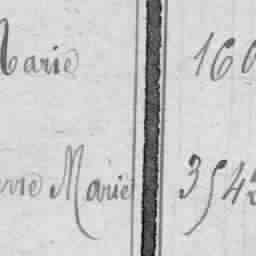 Marie 160
erre Marie 3542